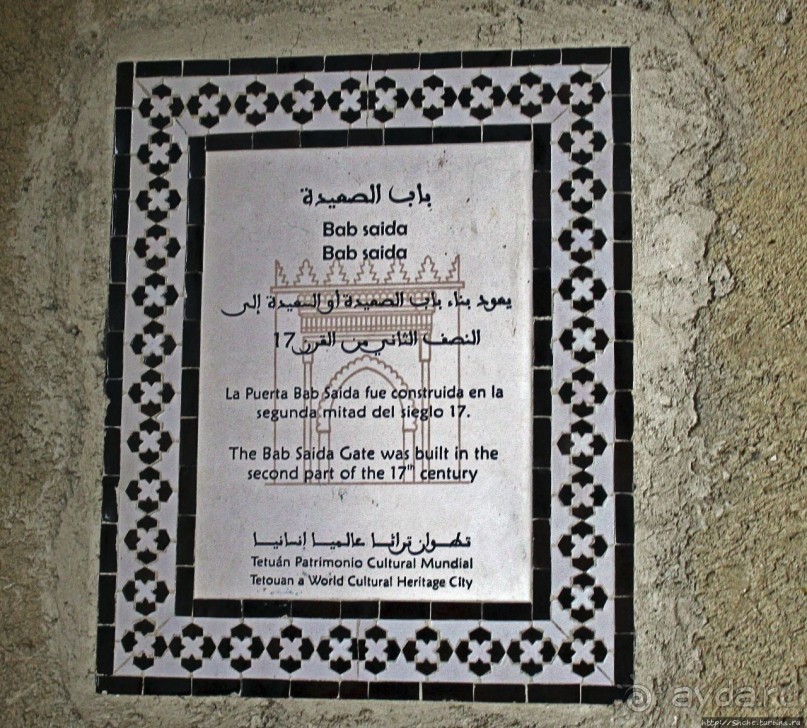 باب الصعيدة
Bab saida
Bab saida
يعود بناء باب الصعيدة أو السعيدة إلى
النصف الثاني من القرن 17
La Puerta Bab Saida fue construida en la
segunda mitad del sieglo 17.
The Bab Saida Gate was built in the
second part of the 17" century
تطـوان تراثـا عالميـا إنسانيـا
Tetuán Patrimonio Cultural Mundial
Tetouan a World Cultural Heritage City
ayda.ru
http://Snche.turbina.ru